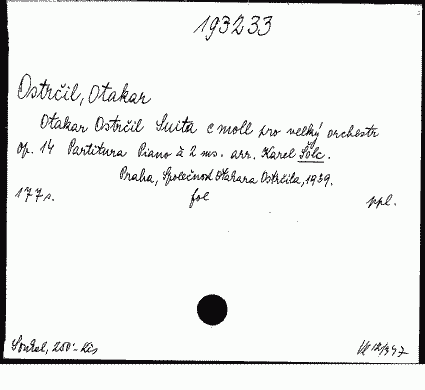 193233
Ostrčil, Otakar
Otakar Ostrčil Suita c moll pro velký orchestr
op. 14 Partitura Piano à 2 ms. arr. Karel Šolc.
Praha, Společnost Otakara Ostrčila, 1939.
177 s. fol ppl.
250'- Kčs